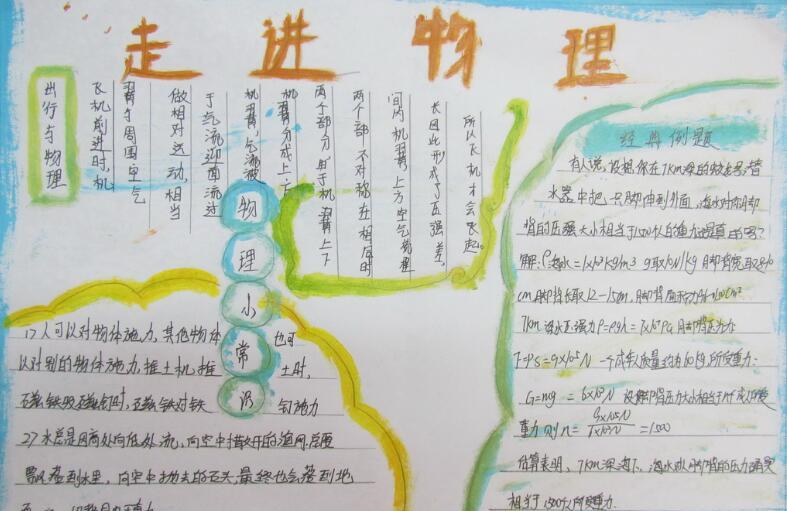 走进物理
出行与物理
飞机前进时，机
翼与周围空气
做相对运动，相当
于气流迎面流过
机翼，气流被
机翼分成上下
两个部分由于机翼上下
两个部 不对称在相同时
间内机翼上方空气流程
长因此形成了压强差，
所以飞机才会飞起。
物理小常识
1、人可以对物体施力，其他物体也可
以对别的物体施力，推土机推土时，
磁铁吸磁钉时，磁铁对铁钉施力
2、水总是因高处向低处流，向空中撒开的渔网
落到水里，向空中抛去的石头，最终也会落到地
经典例题
有人说，设想你在7km深的蛟龙号潜
水器中把一只脚伸到外面，海水对你脚
背的压强大小相当于1500个人的重力，这是真的吗？
解：ρ海水=1×10³kg/m³ g取10N/kg 脚背宽取
cm，脚背长取12-15cm，脚背面积
7km深水压强为P=ρgh=7×10⁷Pa 脚背压力为
F=PS=9×10⁵N 一个成年人质量约为60kg，所受重力：
G=mg =6×10²N 设脚背压力大小相当于n个成人所受
重力 则n=9×10⁵N/6×10²N=1500
估算表明，7km深海下，海水对脚背的压力确实
相当于1500个人所受重力